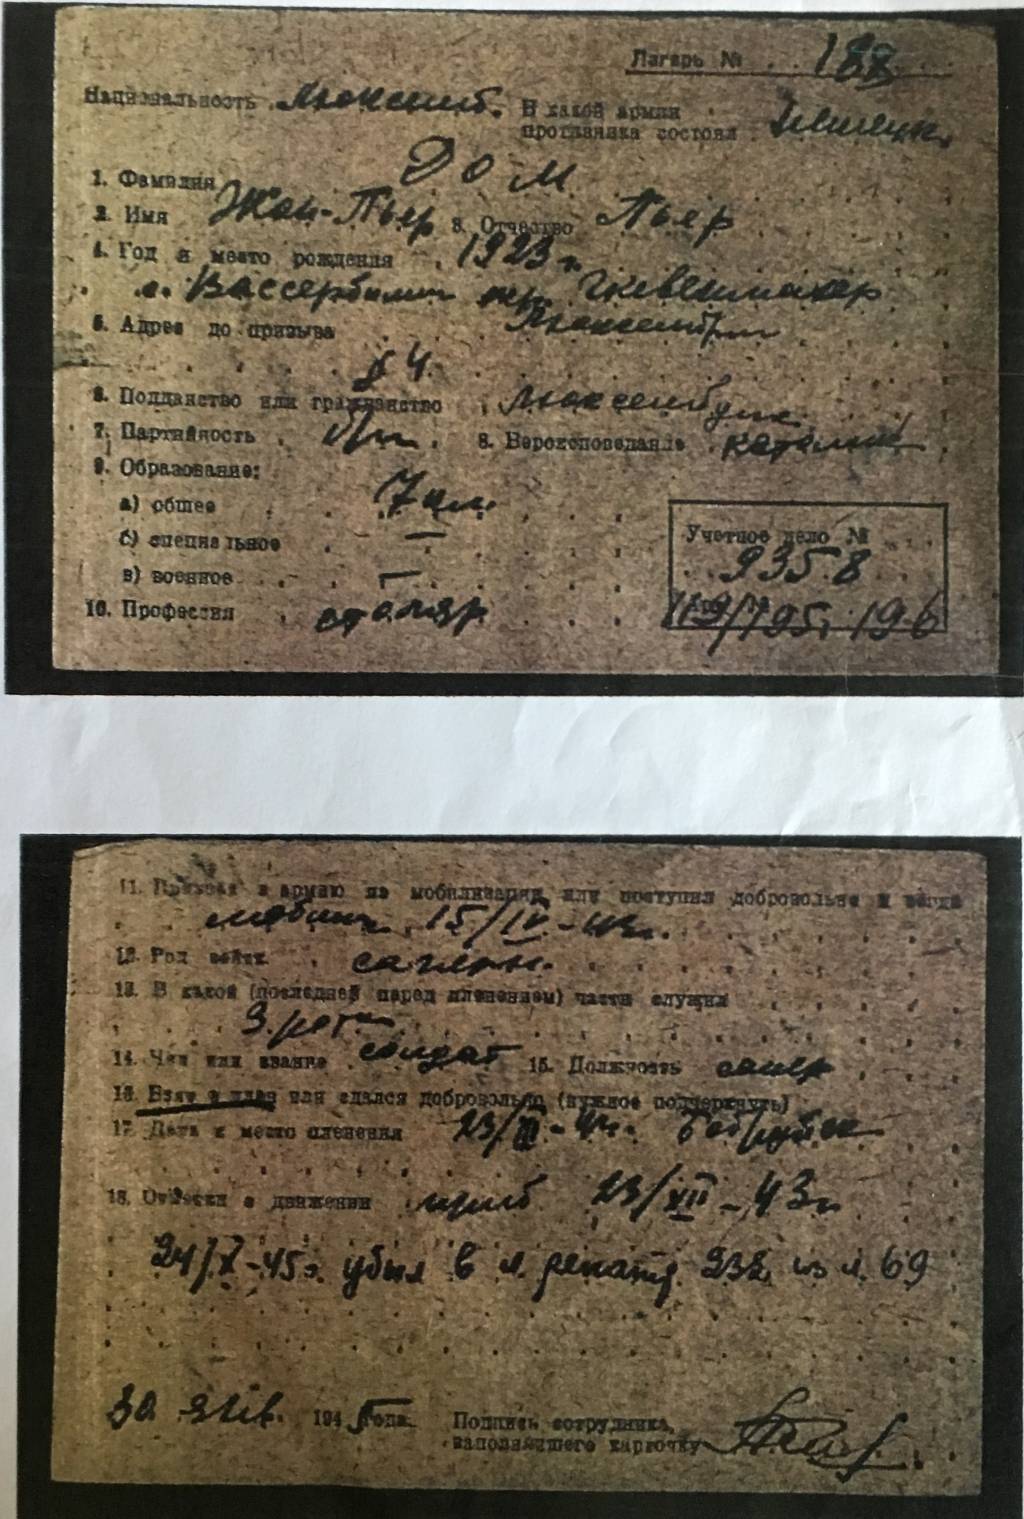 Лагерь № 188
Национальность Люксемб. В какой армии
противника состоял Немецк.
1. Фамилия Дом
2. Имя Жан-Пьер 3. Отчество Пьер
4. Год и место рождения 1923 г.
с. Вассербилиг Гревенмахер
5. Адрес до призыва Люксембург
§ 4.
6. Подданство или гражданство Люксембург
7. Партийность б/п. 8. Вероисповедание католик
9. Образование:
а) общее 7 кл.
б) специальное —
в) военное —
10. Профессия столяр.
Учетное дело №
9358
119/105. 196
11. Призван в армию по мобилизации или поступил добровольно и когда
15/IV-43г.
12. Род войск саперн.
13. В какой (последней перед пленением) части служил
3. рота
14. Чин или звание солдат 15. Должность сапер
16. Взят в плен или сдался добровольно (нужное подчеркнуть)
17. Дата и место пленения Бобруйск
18. Отметки о движении приб 23/XII-43г.
24/X-45г. убыл в л. репатр. 232 из л. 69
30 янв. 1945 года. Подпись сотрудника,
заполнившего карточку